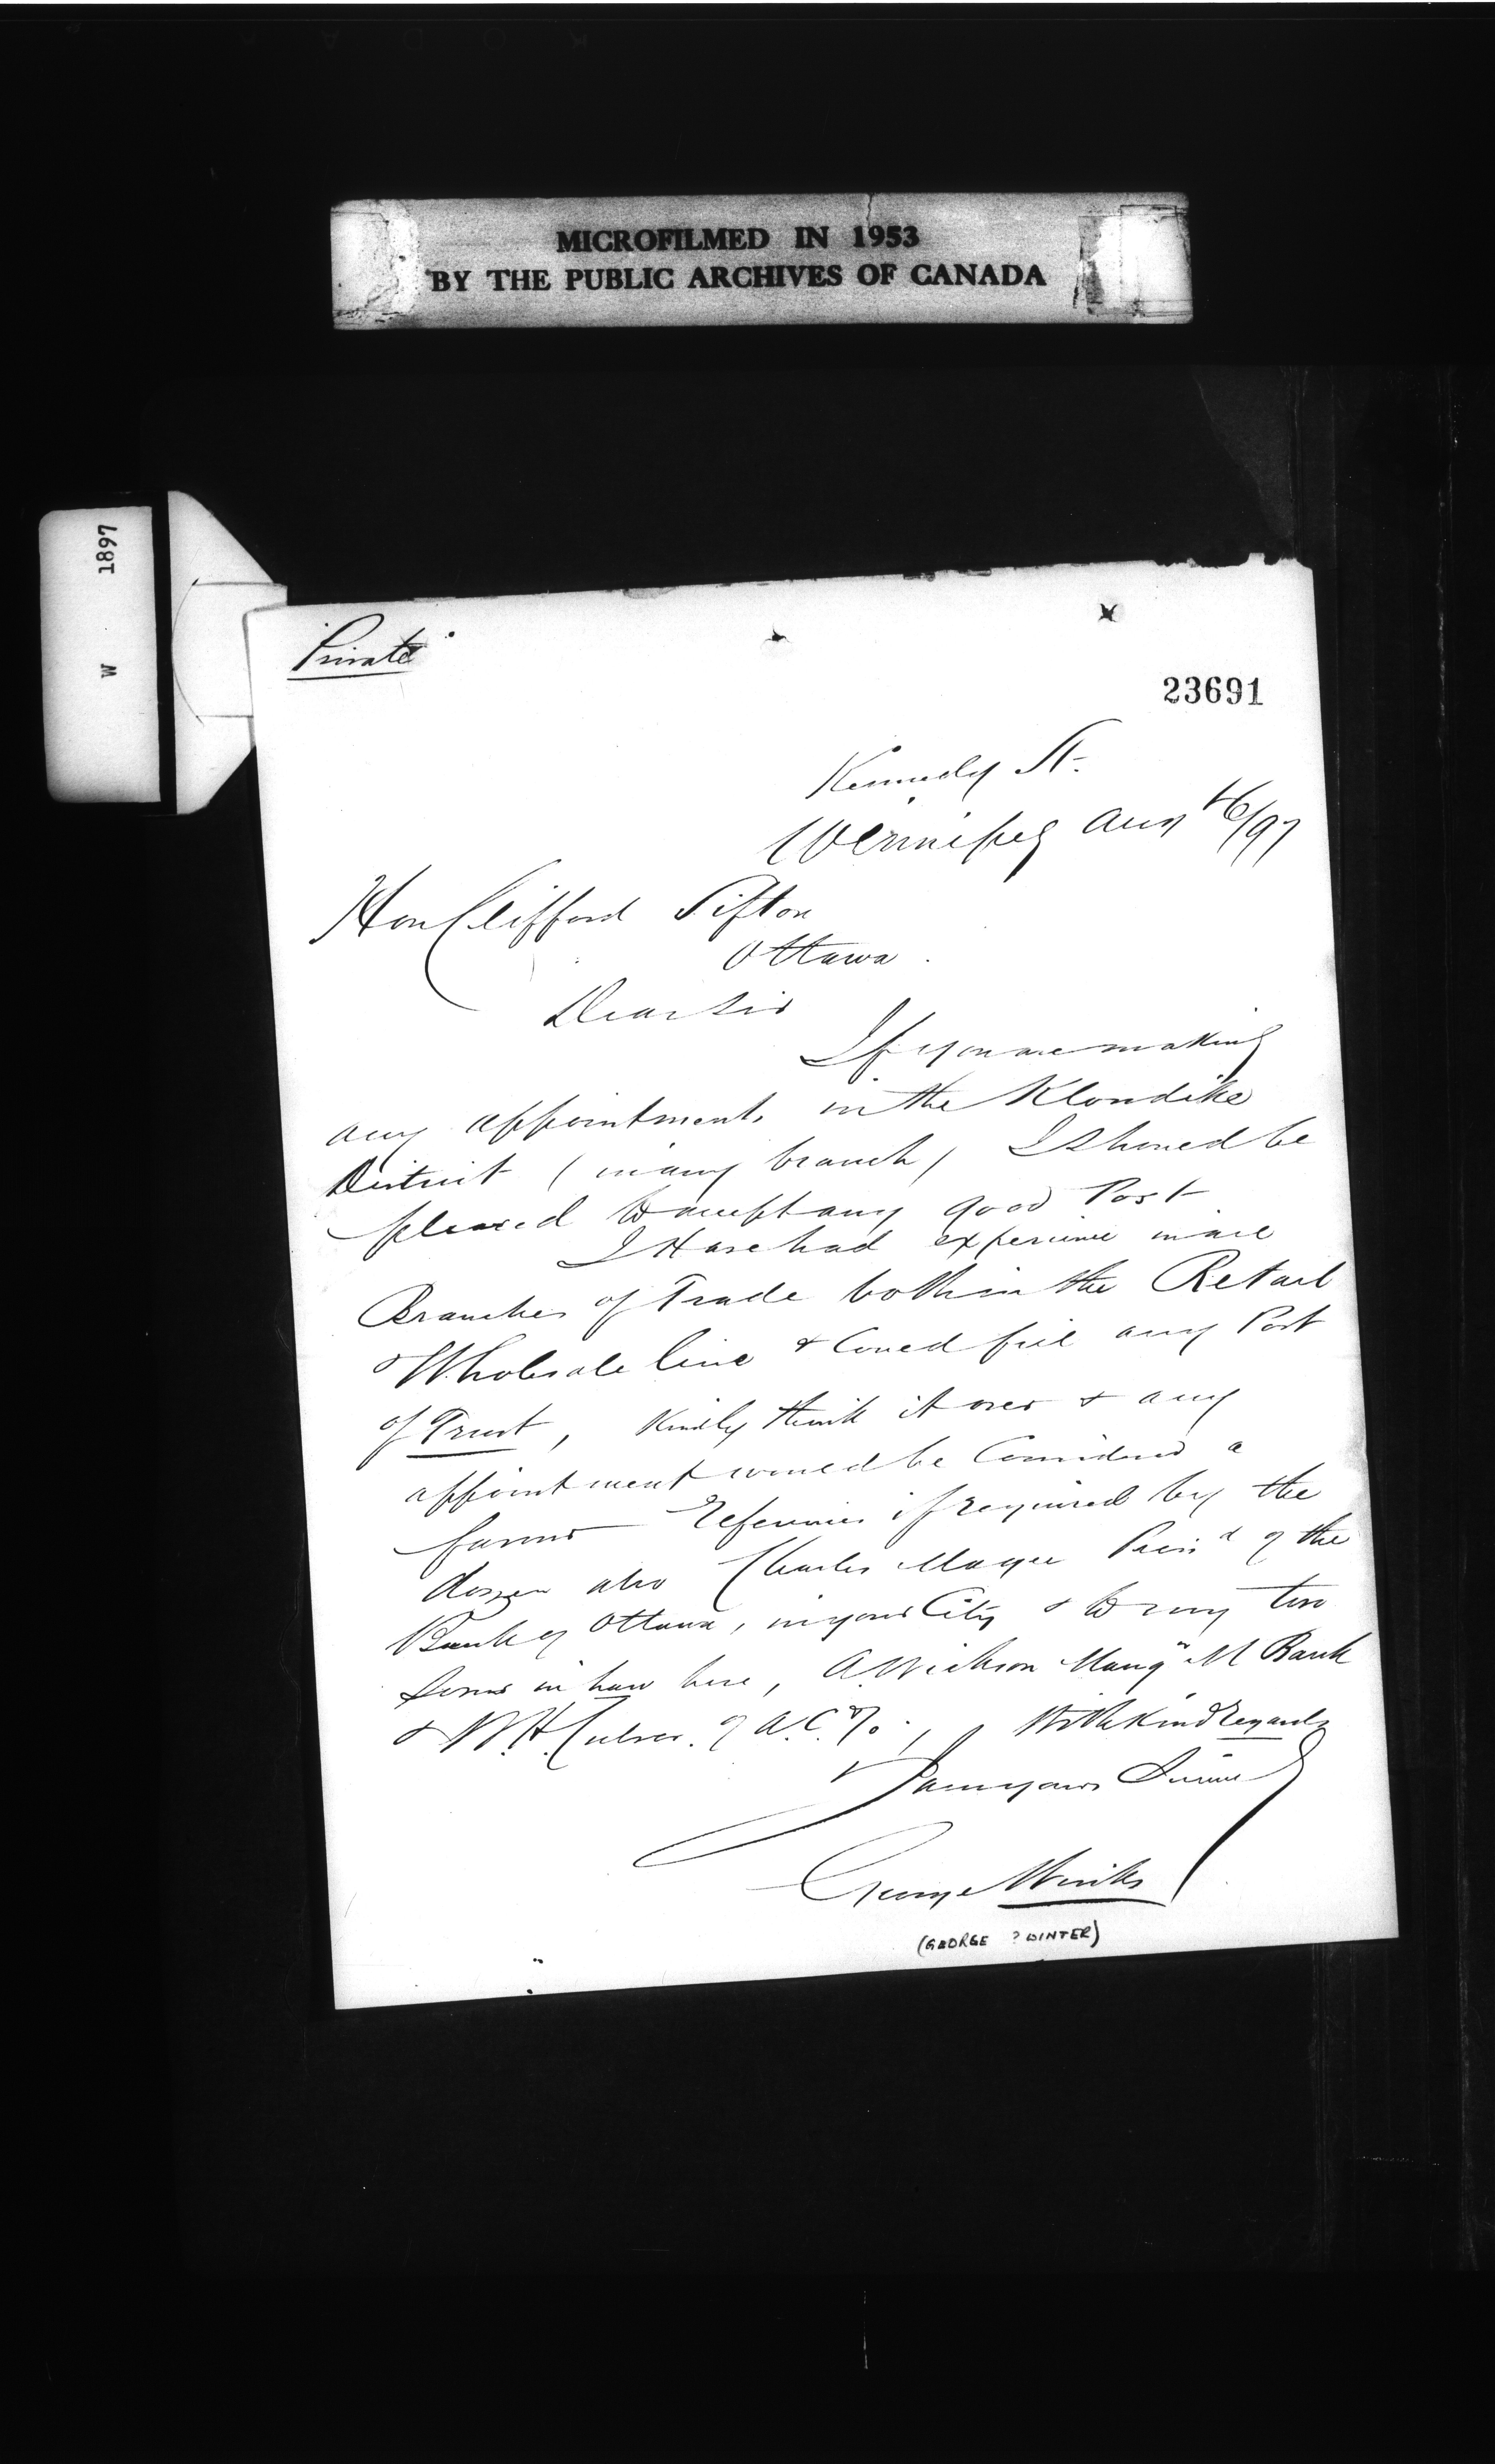 MICROFILMED IN 1953
BY THE PUBLIC ARCHIVES OF CANADA
W 1897
Private
23691
Kennedy St.
Winnipeg Aug 16/97
Hon Clifford Sifton
Ottawa.
Dear Sir
If you are making
any appointments in the Klondike
District (in any branch) I should be
pleased to accept any good Post
I Have had experience in all
Branches of Trade both in the Retail
& Wholesale line & could fill any Post
of Trust, Kindly think it over & any
appointment would be Considered a
favour References if required by the
dozen also Charles Magee Presd of the
Bank of Ottawa, in your City & to my two
Sons in law here, A. Wickson Mang M Bank
& W.H. Culver. of A.C. & Co., With Kind Regards
I am yours Sincerely
George
(GEORGE ? WINTER)